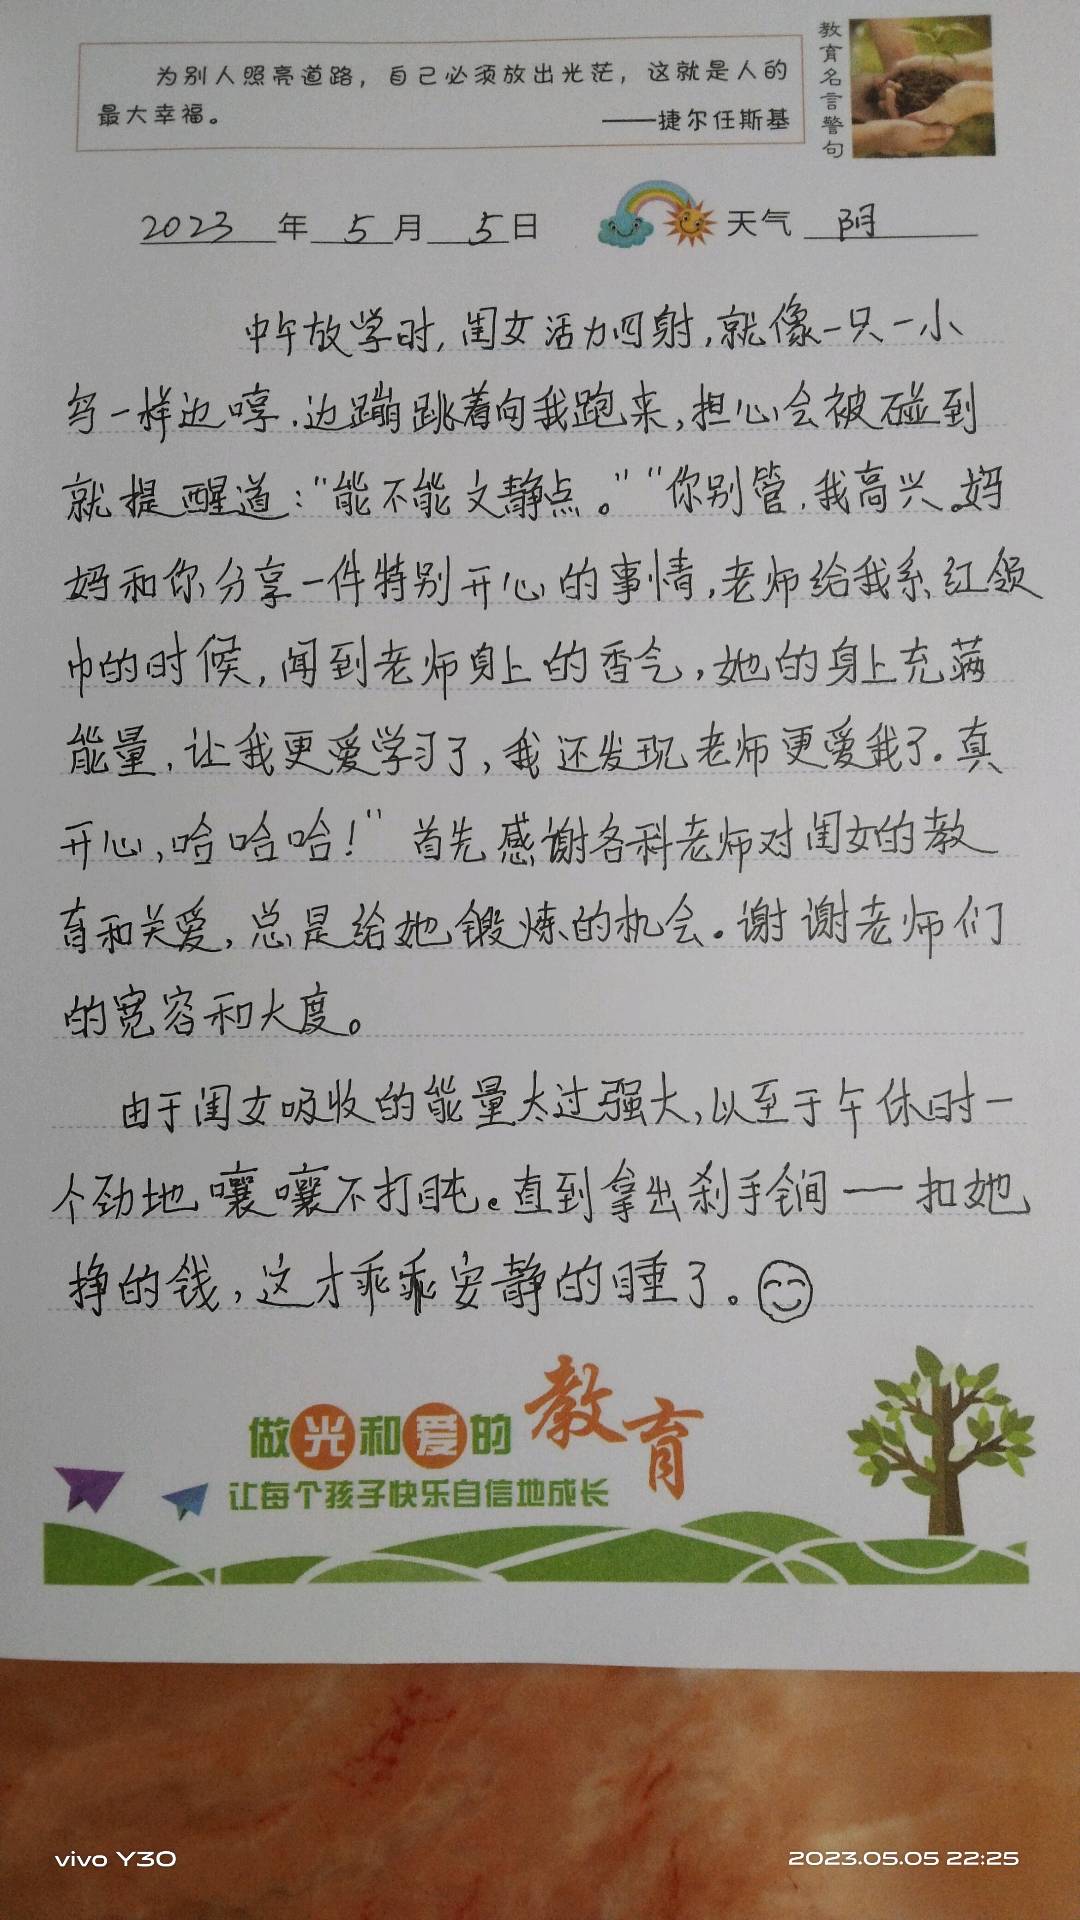 为别人照亮道路，自己必须放出光茫，这就是人的
最大幸福。
——捷尔任斯基
教育名言警句
2023年5月5日
天气 阴
中午放学时，闺女活力四射，就像一只一小
鸟一样边哼.边蹦跳着向我跑来，担心会被碰到
就提醒道：“能不能文静点。”“你别管，我高兴。妈
妈和你分享一件特别开心的事情，老师给我系红领
巾的时候，闻到老师身上的香气，她的身上充满
能量，让我更爱学习了，我还发现老师更爱我了.真
开心，哈哈哈！”首先感谢各科老师对闺女的教
育和关爱，总是给她锻炼的机会。谢谢老师们
的宽容和大度。
由于闺女吸收的能量太过强大，以至于午休时一
个劲地嚷嚷不打盹。直到拿出刹手锏——扣她
挣的钱，这才乖乖安静的睡了。
做光和爱的教育
让每个孩子快乐自信地成长
vivo Y30
2023.05.05 22:25